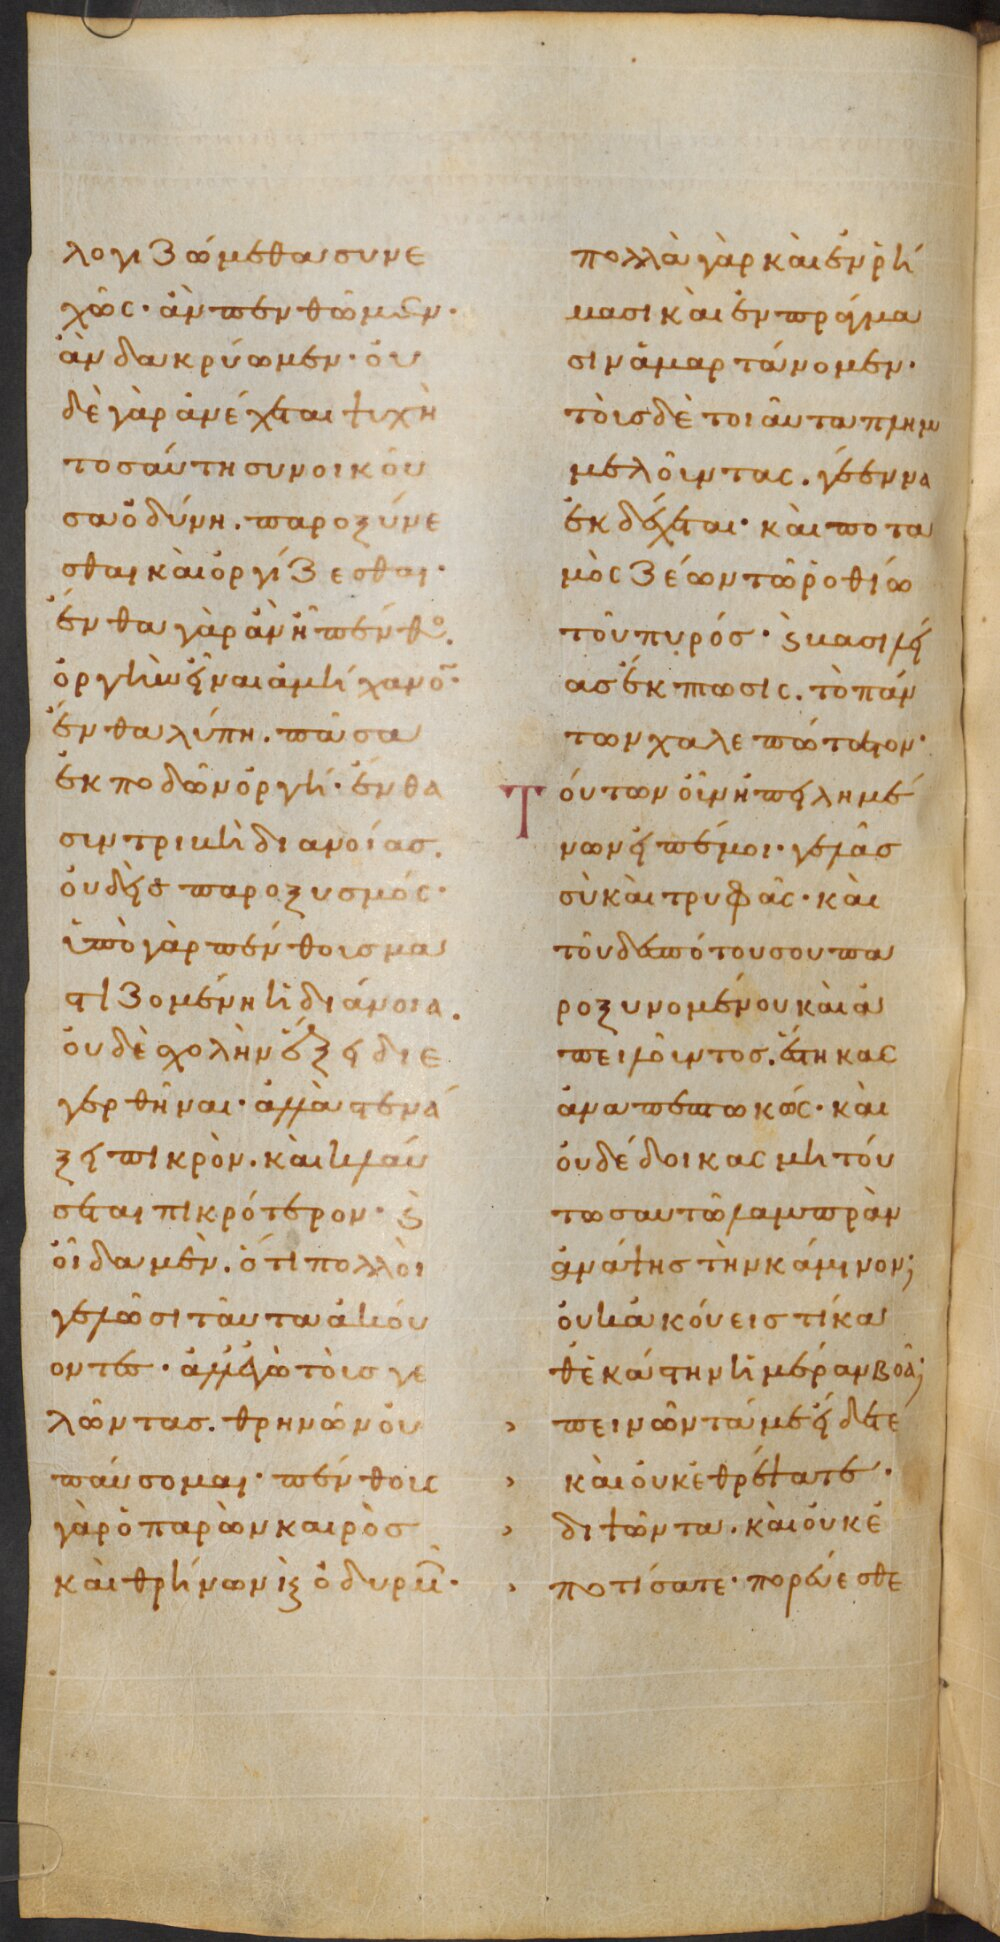 λογιζώμεθα συνε
χῶς· ἂν πενθῶμεν·
ἂν δακρύωμεν· οὐ
δὲ γὰρ ἀνέχεται ψυχὴ
τοσαύτη συνοικοῦ
σα ὀδύνη. παροξύνε
σθαι καὶ ὀργίζεσθαι·
ἔνθα γὰρ ἂν ἦ πένθο.
ὀργὴν εἶναι ἀμήχανο·
ἔνθα λύπη. πᾶσα
ἐκποδῶν ὀργή· ἔνθα
συντριβὴ διανοίας.
οὐδεὶς παροξυσμός·
ὑπὸ γὰρ πένθους μα
στιζομένη ἡ διάνοια.
οὐδὲ σχολὴν ἕξει διε
γερθῆναι· ἀλλὰ στενά
ξει πικρὸν. καὶ κλαύ
σεται πικρότερον· καὶ
οἶδα μὲν. ὅτι πολλοὶ
γελῶσι ταῦτα ἀκού
οντες· ἀλλ ἐγὼ τοὺς γε
λῶντας. θρηνῶν οὐ
παύσομαι· πένθους
γὰρ ὁ παρὼν καιρὸς
καὶ θρήνων καὶ ὀδυρμ·
πολλὰ γὰρ καὶ ἐν ῥή
μασι καὶ ἐν πράγμα
σιν ἁμαρτάνομεν·
τοὺς δὲ τοιαῦτα πλημ
μελοῦντας. γέεννα
ἐκδέχεται· καὶ ποτα
μὸς ζέων τῶ ῥοθίω
τοῦ πυρός· καὶ βασιλεί
ας ἔκπτωσις. τὸ πάν
των χαλεπώτατον·
Τούτων οὖν ἠπειλημέ
νων εἰπέ μοι· γελᾶς
σὺ καὶ τρυφᾶς· καὶ
τοῦ δεσπότου σου πα
ροξυνομένου καὶ ἀ
πειλοῦντος. ἕστηκας
ἀναπεπτωκώς· καὶ
οὐ δέδοικας μὴ τού
τω σαυτῶ λαμπρὰν
ἀνάψης τὴν κάμινον;
οὐκ ἀκούεις τί κα
θ ἑκάστην ἡμέραν βοᾶ;
› πεινῶντά με εἴδετε
› καὶ οὐκ ἐθρέψατε·
› διψῶντα. καὶ οὐκ ἐ
› ποτίσατε· πορεύεσθε